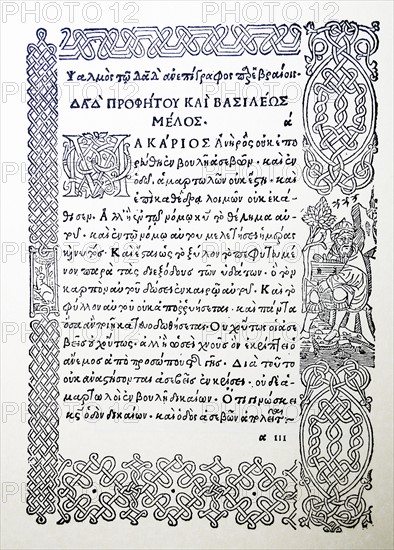 Ψαλμὸς τῷ δαδ ἀνεπίγραφος παρ' ἑβραίοις·
ΔΑΔ ΠΡΟΦΗΤΟΥ ΚΑΙ ΒΑΣΙΛΕΩΣ
ΜΕΛΟΣ· α
ΜΑΚΑΡΙΟΣ Ἀνὴρ ὃς οὐκ ἐπο
ρεύθη ἐν βουλῇ ἀσεβῶν· καὶ ἐν
ὁδῷ ἁμαρτωλῶν οὐκ ἔστη· καὶ
ἐπὶ καθέδρᾳ λοιμῶν οὐκ ἐκά-
θισεν. Ἀλλ' ἢ ἐν τῷ νόμῳ κυ τὸ θέλημα αὐ-
τοῦ· καὶ ἐν τῷ νόμῳ αὐτοῦ μελετήσει ἡμέρας
καὶ νυκτός. Καὶ ἔσται ὡς τὸ ξύλον τὸ πεφυτευμέ
νον παρὰ τὰς διεξόδους τῶν ὑδάτων· ὃ τὸν
καρπὸν αὐτοῦ δώσει ἐν καιρῷ αὐτοῦ. Καὶ τὸ
φύλλον αὐτοῦ οὐκ ἀπορρυήσεται· καὶ πάντα
ὅσα ἂν ποιῇ κατευοδωθήσεται. Οὐχ οὕτως οἱ ἀσε
βεῖς οὐχ οὕτως· ἀλλ' ἢ ὡσεὶ χνοῦς ὃν ἐκρίπτει ὁ
ἄνεμος ἀπὸ προσώπου τῆς γῆς. Διὰ τοῦτο
οὐκ ἀναστήσονται ἀσεβεῖς ἐν κρίσει· οὐδὲ ἁ-
μαρτωλοὶ ἐν βουλῇ δικαίων. Ὅτι γινώσκει
κς ὁδὸν δικαίων· καὶ ὁδὸς ἀσεβῶν ἀπολεῖται·
α III